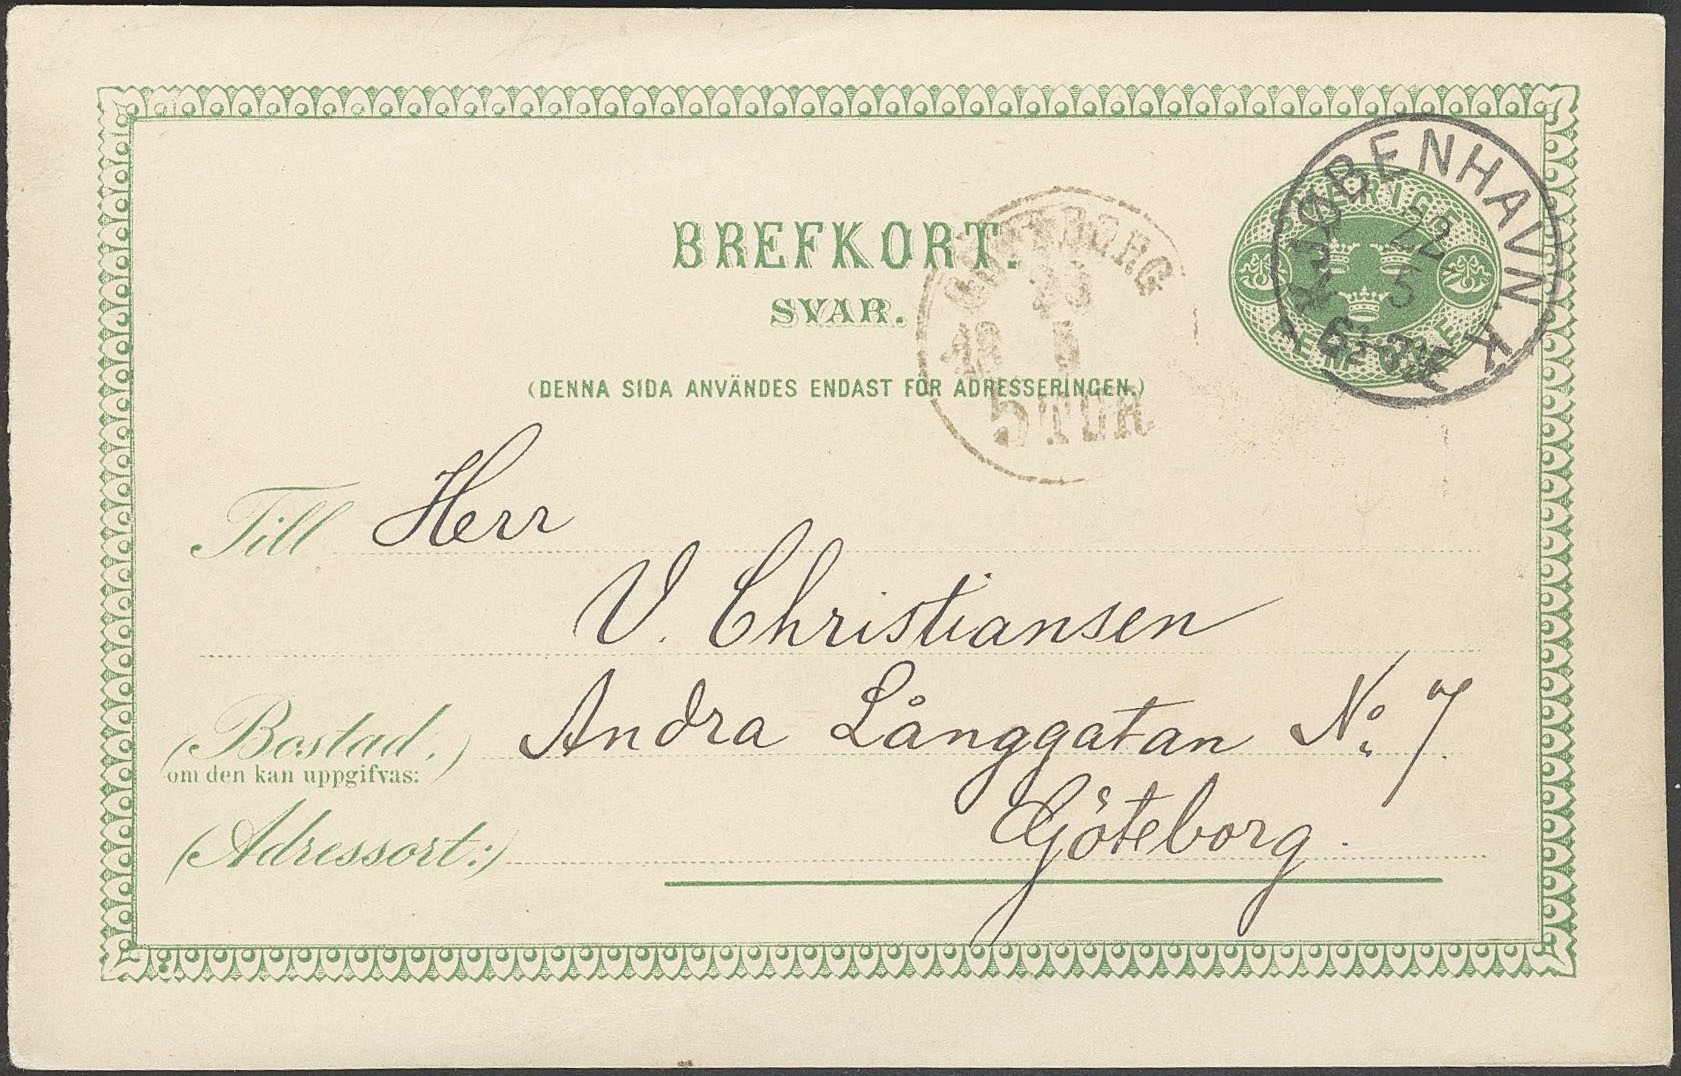 BREFKORT.
SVAR.
(DENNA SIDA ANVÄNDES ENDAST FÖR ADRESSERINGEN.)
KJØBENHAVN K
22
5
GÖTEBORG
23
5
5 TUR
Till Herr
V. Christiansen
(Bostad,) Andra Långgatan No. 7.
om den kan uppgifvas:
(Adressort:) Göteborg.